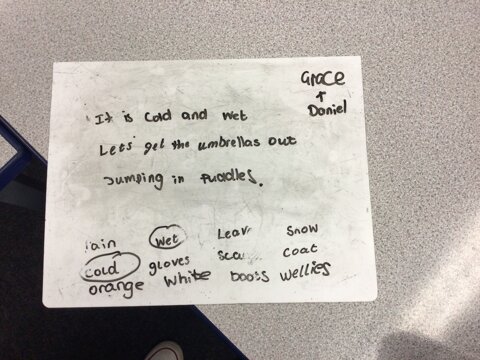 Grace
↑
Daniel
It is cold and wet
Lets get the umbrellas out
Jumping in puddles.
rain wet Leav snow
cold gloves sca coat
orange white booss wellies